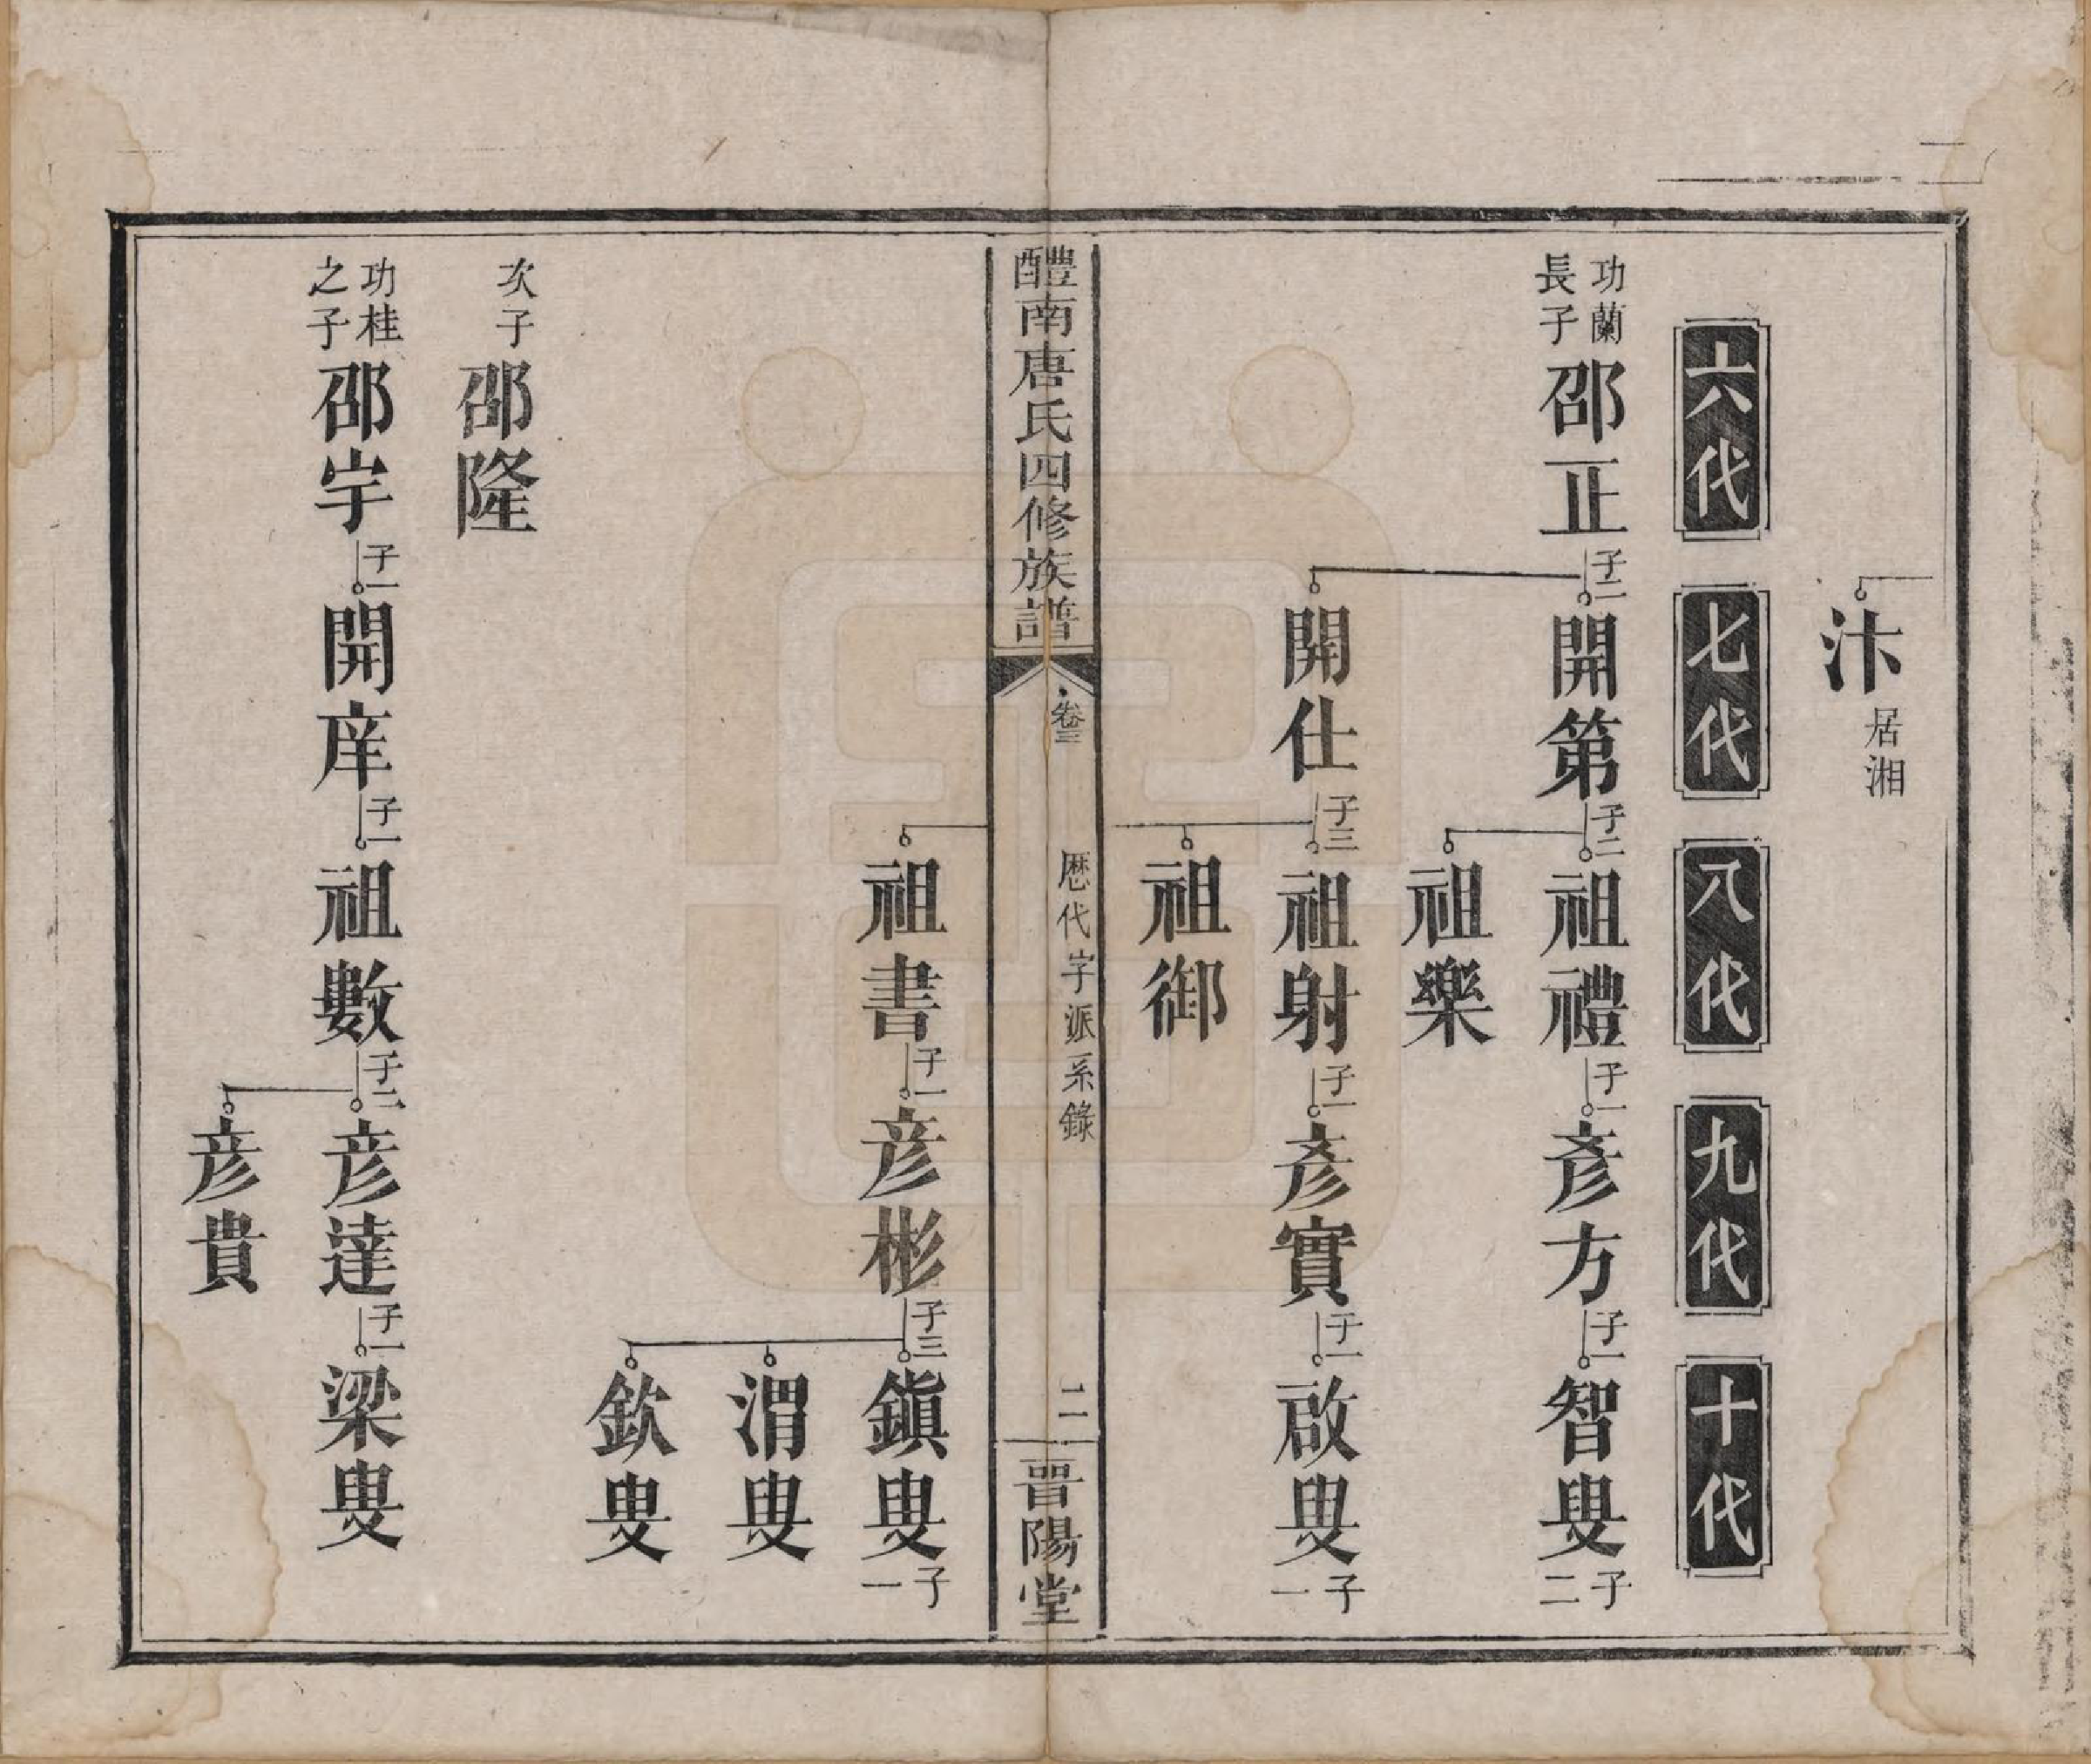 汴居湘
六代 七代 八代 九代 十代
功蘭長子 邵正 子二 開第 子二 祖禮 子一 彥方 子一 智叟 子二
祖樂
開仕 子三 祖射 子一 彥實 子一 啟叟 子一
祖御
醴南唐氏四修族譜 卷三 歷代字派系錄 二 晉陽堂
祖書 子一 彥彬 子三 鎭叟 子一
渭叟
欽叟
次子 邵隆
功桂之子 邵宇 子一 開庠 子一 祖數 子二 彥達 子一 梁叟
彥貴